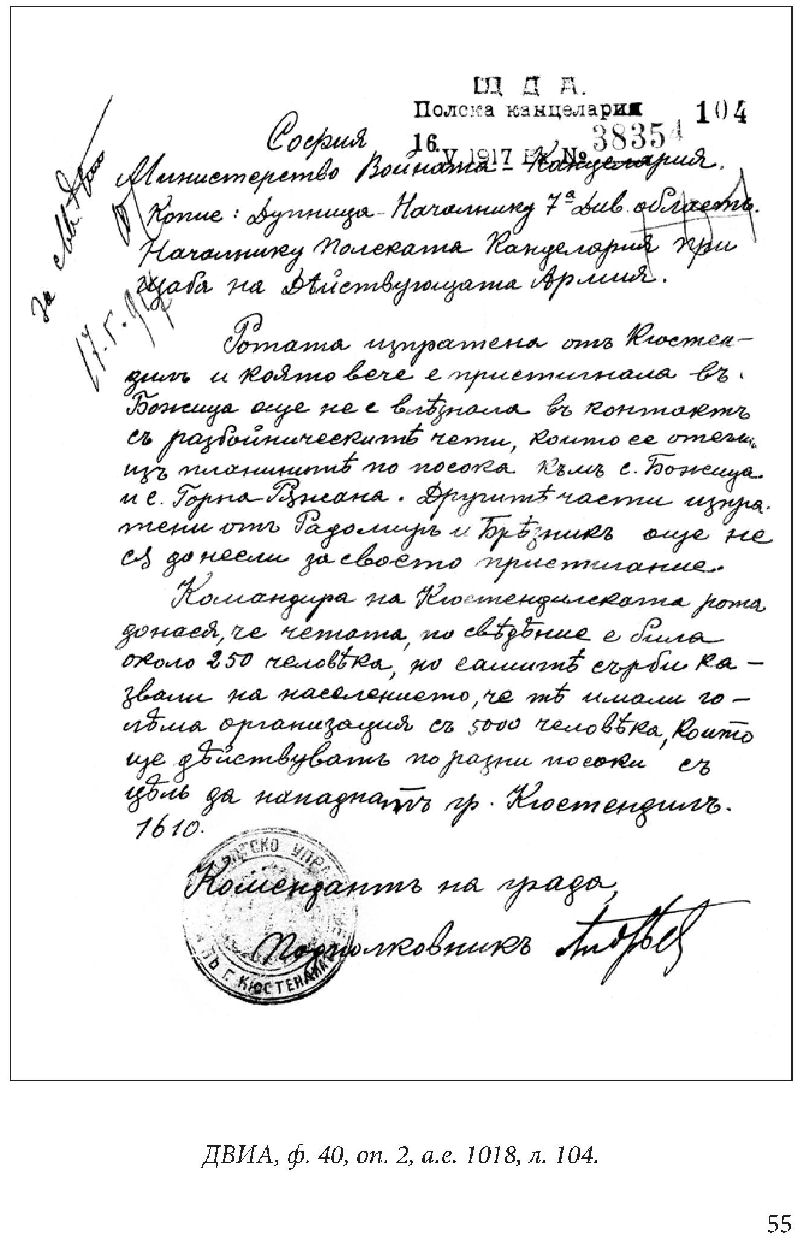 Щ Д А.
Полска канцелария 104
16. V. 1917 Вх. № 38354
София
Министерство Войната – Канцелария.
Копие: Дупница – Началнику 7ª Див. область.
Началнику Полската Канцелария при
щаба на Дѣйствующата Армия.
За
17.5.
Ротата изпратена отъ Кюстен–
дилъ и която вече е пристигнала въ
Божица още не е влѣзнала въ контактъ
съ разбойническитѣ чети, които се
изъ планинитѣ по посока къмъ с. Божица
и с. Горна Ръжана. Другитѣ части изпра–
тени отъ Радомиръ и Брѣзникъ още не
сѫ донесли за своето пристигание.
Командира на Кюстендилската рота
донася, че четата, по свѣдѣние е била
около 250 человѣка, но самитѣ сърби ка–
звали на населението, че тѣ имали го–
лѣма организация съ 5000 человѣка, които
ще дѣйствуватъ по разни посоки съ
цѣль да нападнатъ гр. Кюстендилъ.
1610.
Комендантъ на града,
Подполковникъ
ВЪ Г. КЮСТЕНДИЛ
ДВИА, ф. 40, оп. 2, а.е. 1018, л. 104.
55